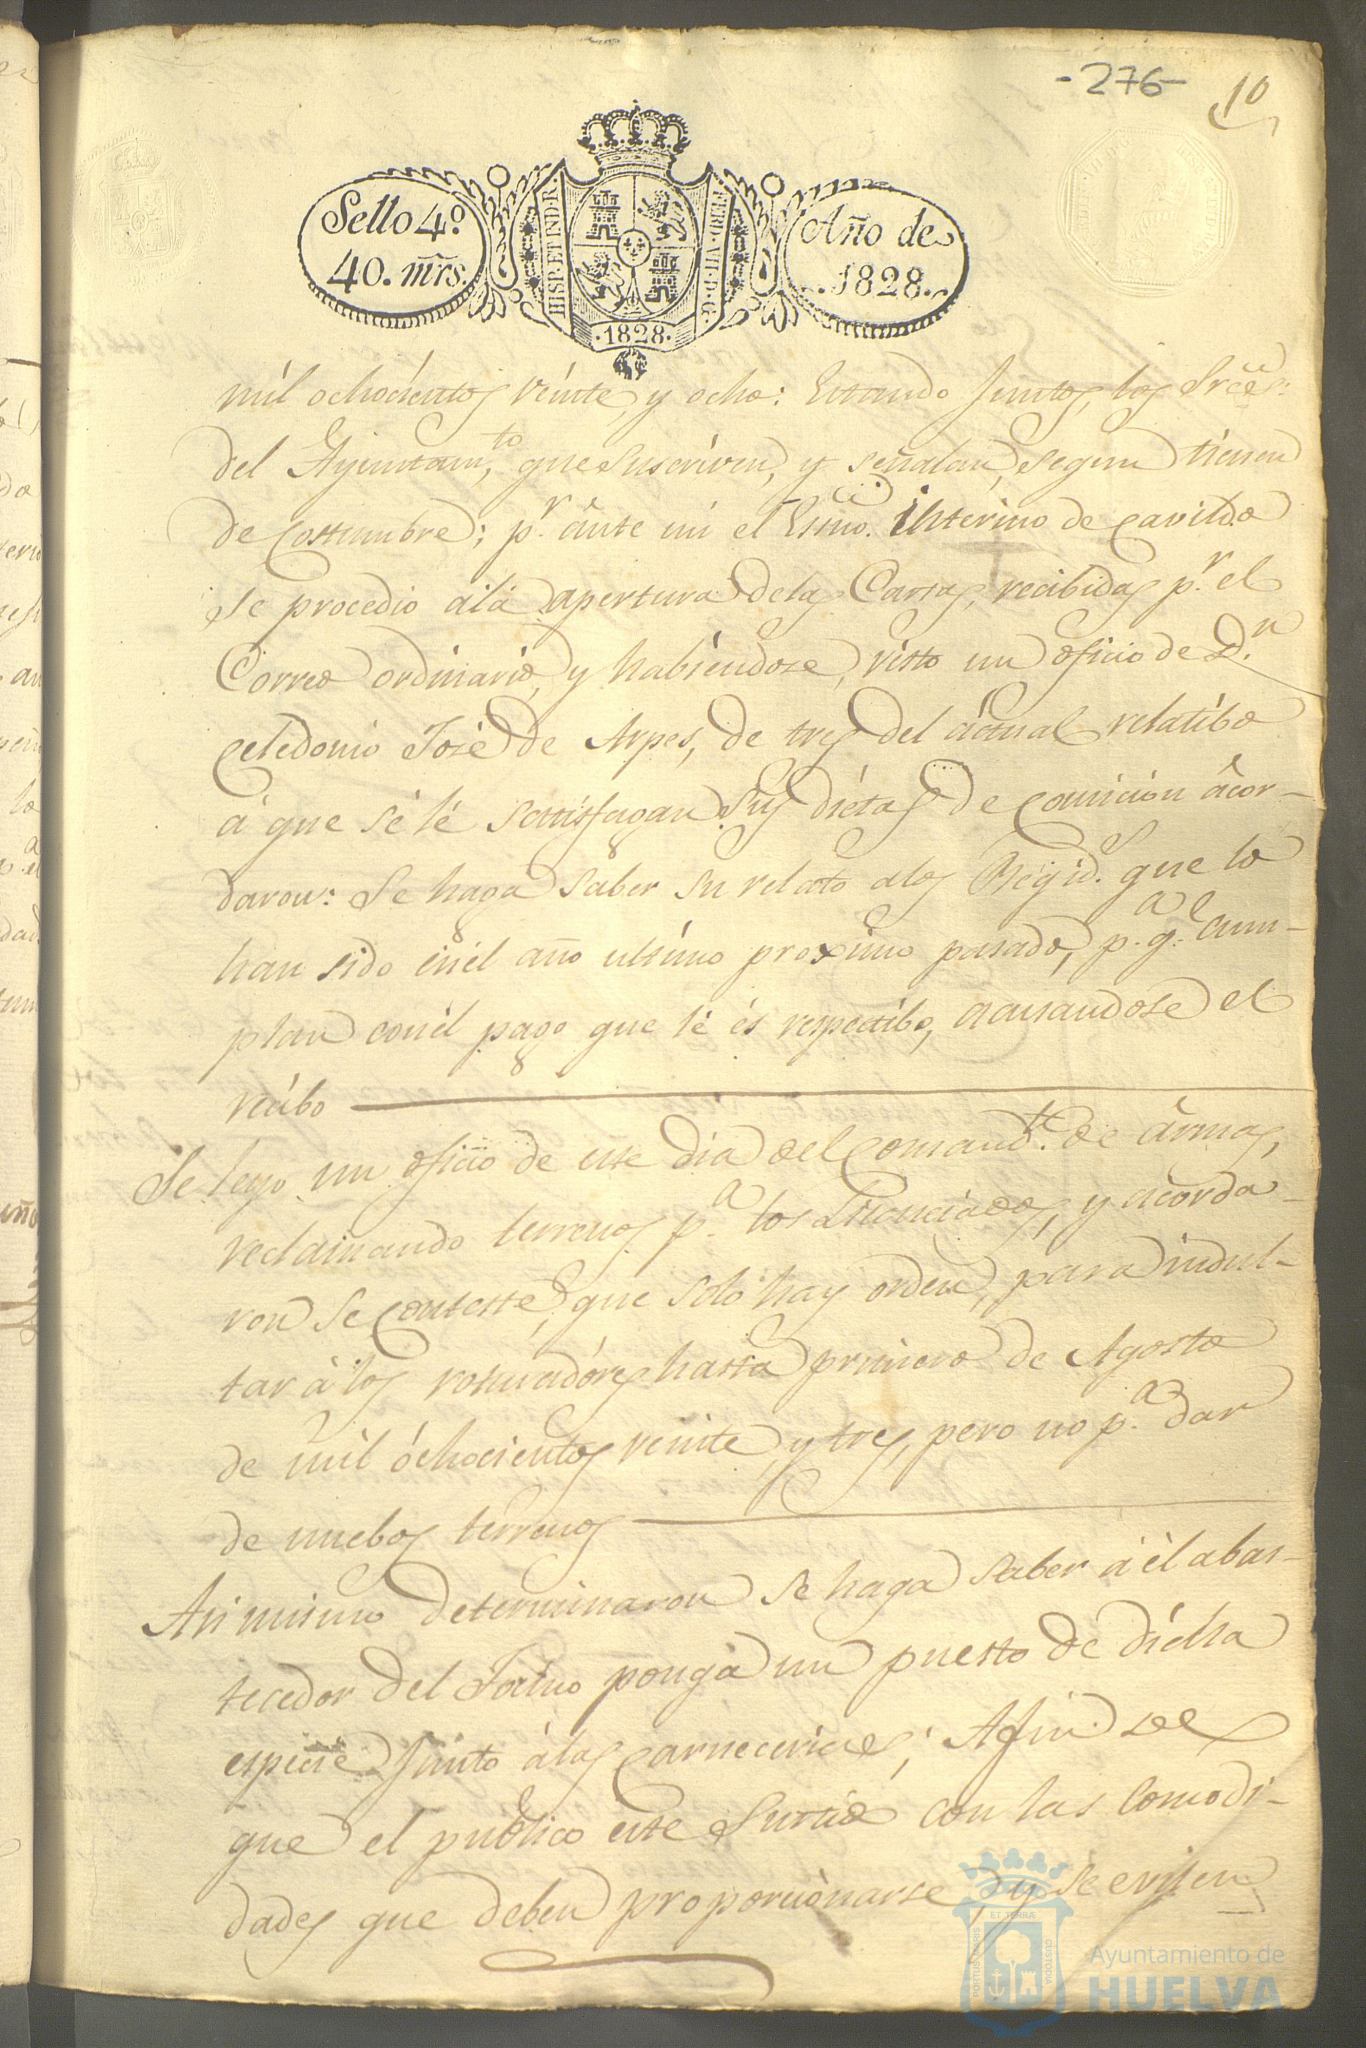 -276-
10
Sello 4º
40. mrs.
HISP. ET IND. R.
FERD. VII. D. G.
·1828·
Año de
.1828.
mil ochocientos veinte, y ocho: Estando Juntos, los Srēs.
del Ayuntamto, que suscriven, y señalan, segun tienen
de Costumbre; pr. ante mi el Essno. interino de Cavildo
se procedio á lá apertura delas Cartas, recibidas pr. el
Correo ordinario, y habiendose, visto un oficio de Dn.
Celedonio José de Arpes, de tres del áctual relatibo
á que sé lé sattisfagan sus diétas de comición âcor-
daron: Se haga saber su relato alos Regids. que lo
han sido én él año ultimo proximo pasado, pa. qe. cum-
plan con él pago que lé és respectibo, acusandose el
recibo
Se leyo un oficio de este dia del Comandte. de ârmas,
reclamando terrenos pa. los Licenciados, y acorda-
ron se conteste, que solo hay orden, para indul-
tar á los roturadóres hasta primero de Agosto
de mil óchocientos veinte, y tres, pero no pa. dar
de nuebos terrenos
Asi mismo determinaron se haga saber á él abas-
tecedor del Tosino ponga un puesto de dicha
especie Junto álas Carnecerias; Afin de
que el publico este Surtido con las comodi-
dades que deben proporcionarse, y se eviten
PORTUS MARIS
ET TERRÆ
CUSTODIA
Ayuntamiento de
HUELVA